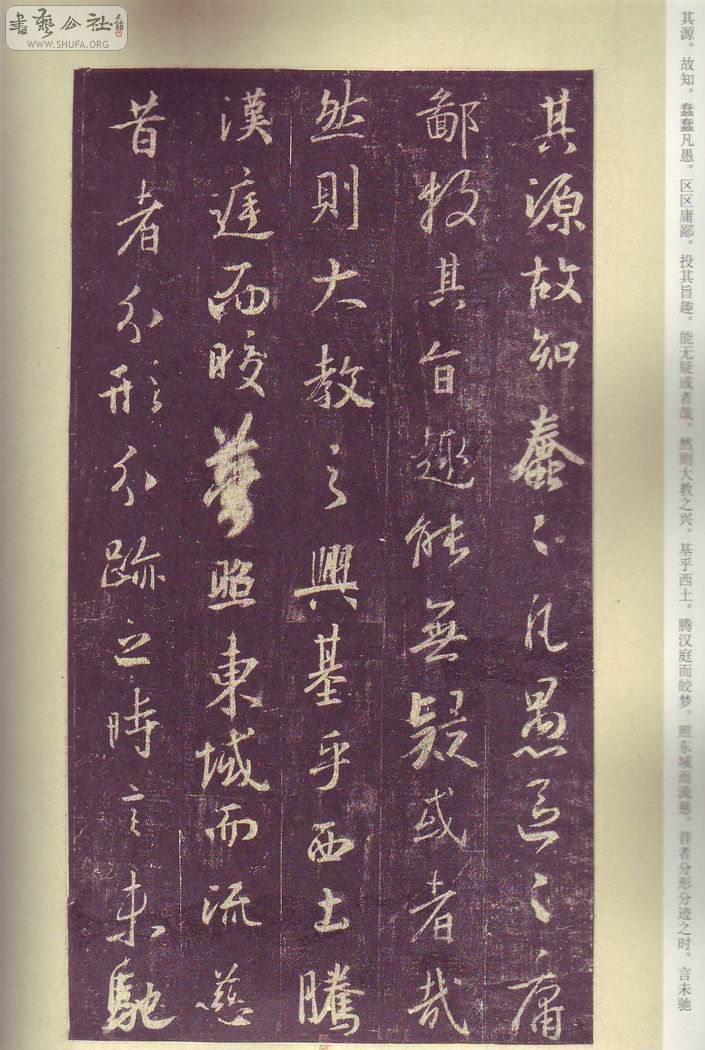 書藝公社
WWW.SHUFA.ORG
其源。故知。蠢蠢凡愚。区区庸鄙。投其旨趣。能无疑或者哉。然则大教之兴。基乎西土。腾汉庭而皎梦。照东域而流慈。昔者分形分迹之时。言未驰
其源故知蠢〻凡愚區〻庸
鄙投其旨趣能無疑或者哉
然則大教之興基乎西土騰
漢庭而皎夢照東域而流慈
昔者分形分跡之時言未馳